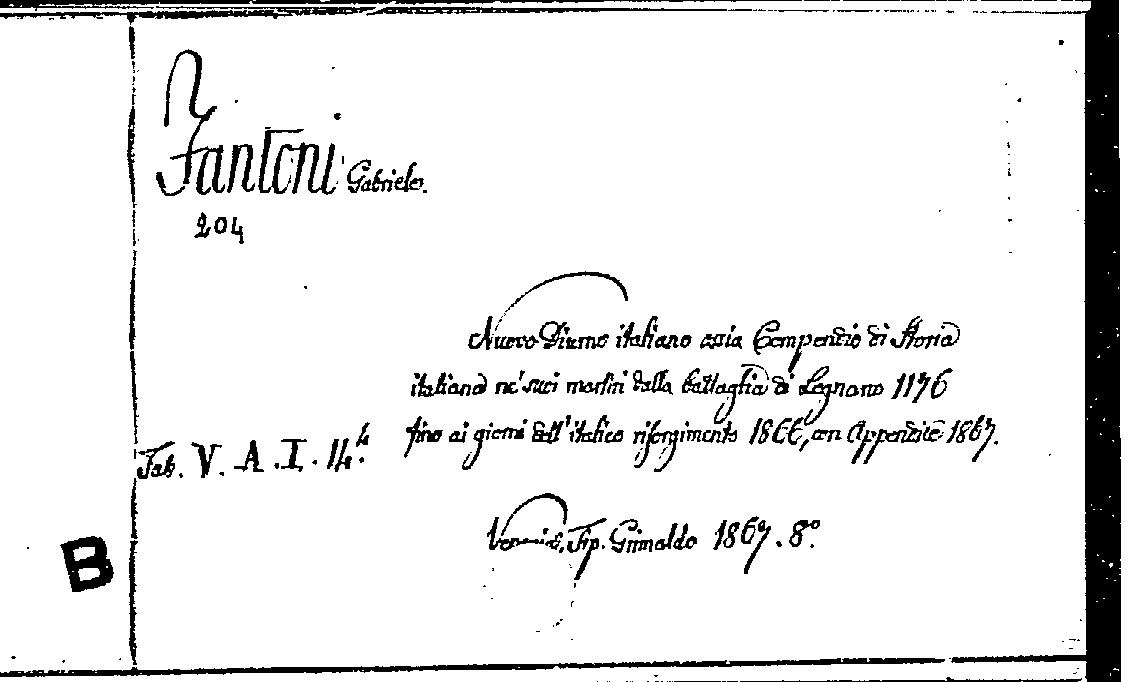 Fantoni Gabriele.
204
Nuovo Diurno italiano ossia Compendio di Storia
italiana ne' suoi martiri dalla battaglia di Legnano 1176
fino ai giorni dell'italico risorgimento 1866, con Appendice 1867.
Tab. V. A. I. 14.4
Venezia, Tip. Grimaldo 1867. 8º.
B